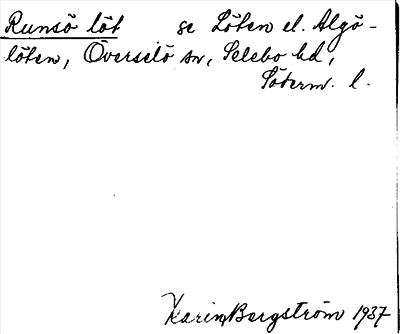 Runsö löt se Löten el. Algö-
löten, Överselö sn, Selebo hd,
Söderm. l.
Karin Bergström 1937